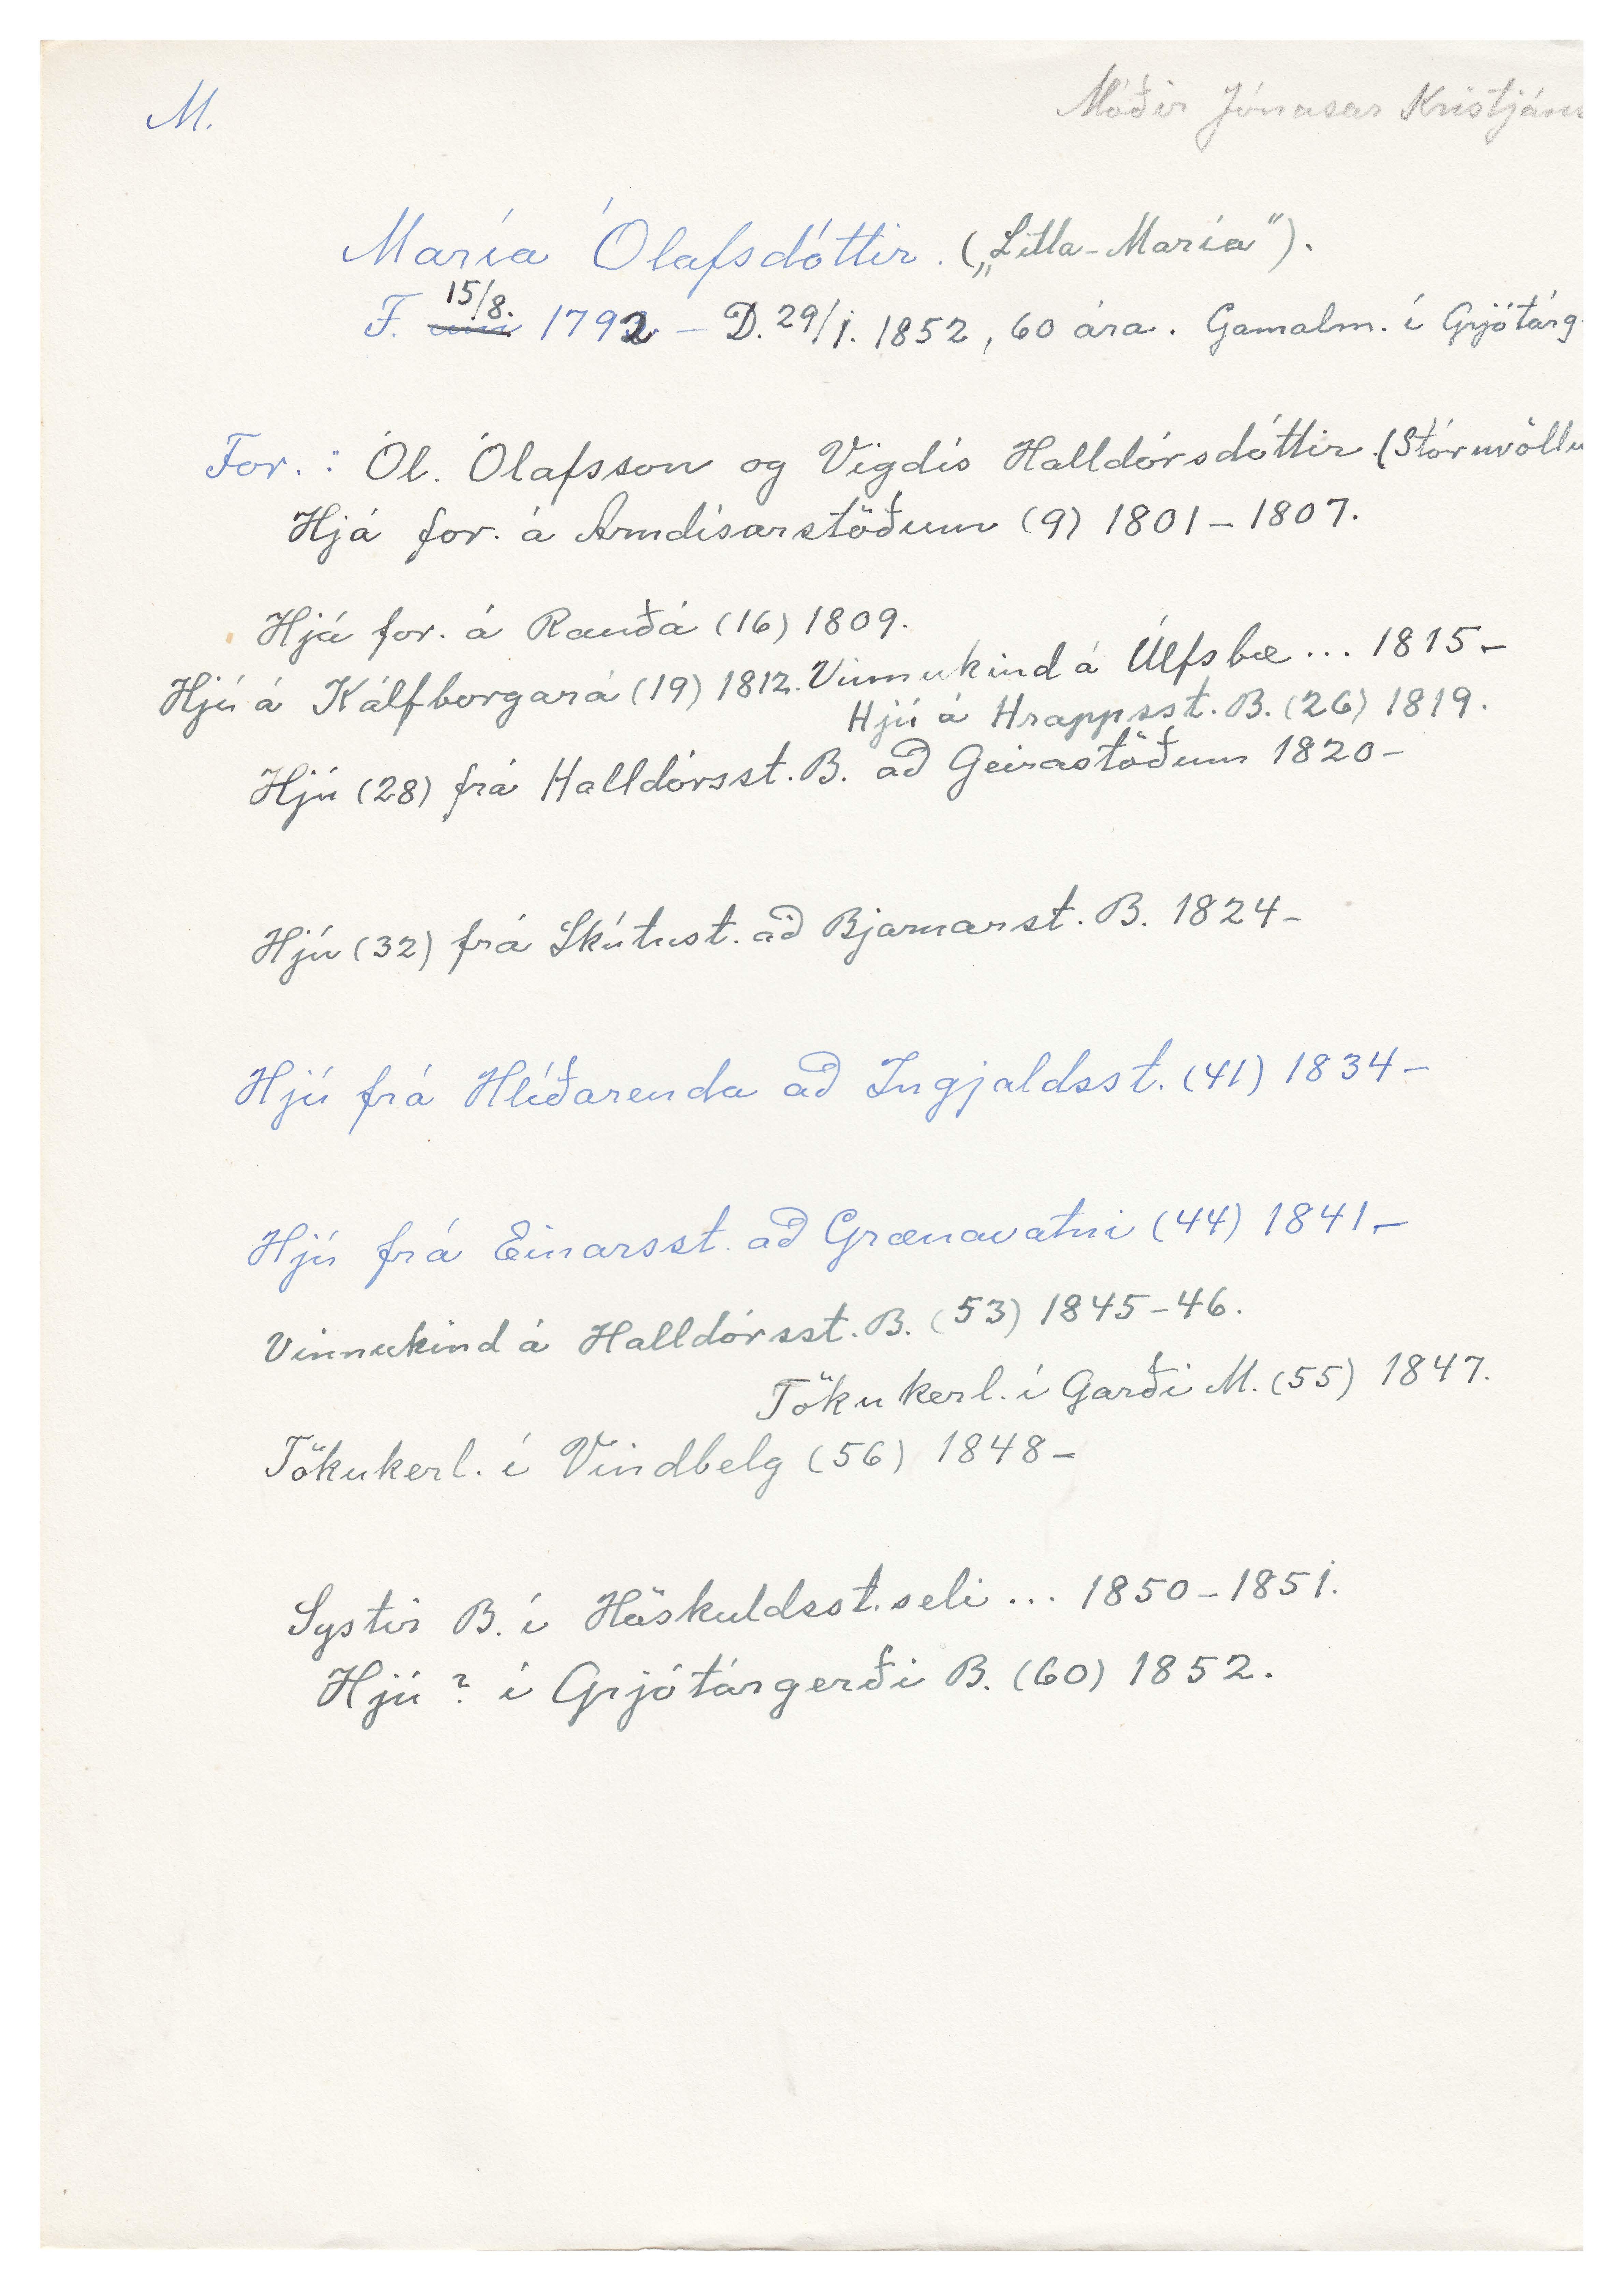 M.
Móðir Jónasar Kristjáns
María Ólafsdóttir. („Litla-María").
F. 15/8. 1792 – D. 29/1. 1852, 60 ára. Gamalm. í Grjótárg.
For.: Ól. Ólafsson og Vigdís Halldórsdóttir. (Stóruvöllu
Hjá for. á Arndísarstöðum (9) 1801–1807.
Hjá for. á Rauðá (16) 1809.
Hjú á Kálfborgará (19) 1812. Vinnukind á Úlfsbæ ... 1815–
Hjú á Hrappsst. B. (26) 1819.
Hjú (28) frá Halldórsst. B. að Geirastöðum 1820–
Hjú (32) frá Skútust. að Bjarnarst. B. 1824–
Hjú frá Hlíðarenda að Ingjaldsst. (41) 1834–
Hjú frá Einarsst. að Grænavatni (44) 1841–
Vinnukind á Halldórsst. B. (53) 1845–46.
Tökukerl. í Garði M. (55) 1847.
Tökukerl. í Vindbelg (56) 1848–
Systir B. í Höskuldsst.seli ... 1850–1851.
Hjú? í Grjótárgerði B. (60) 1852.